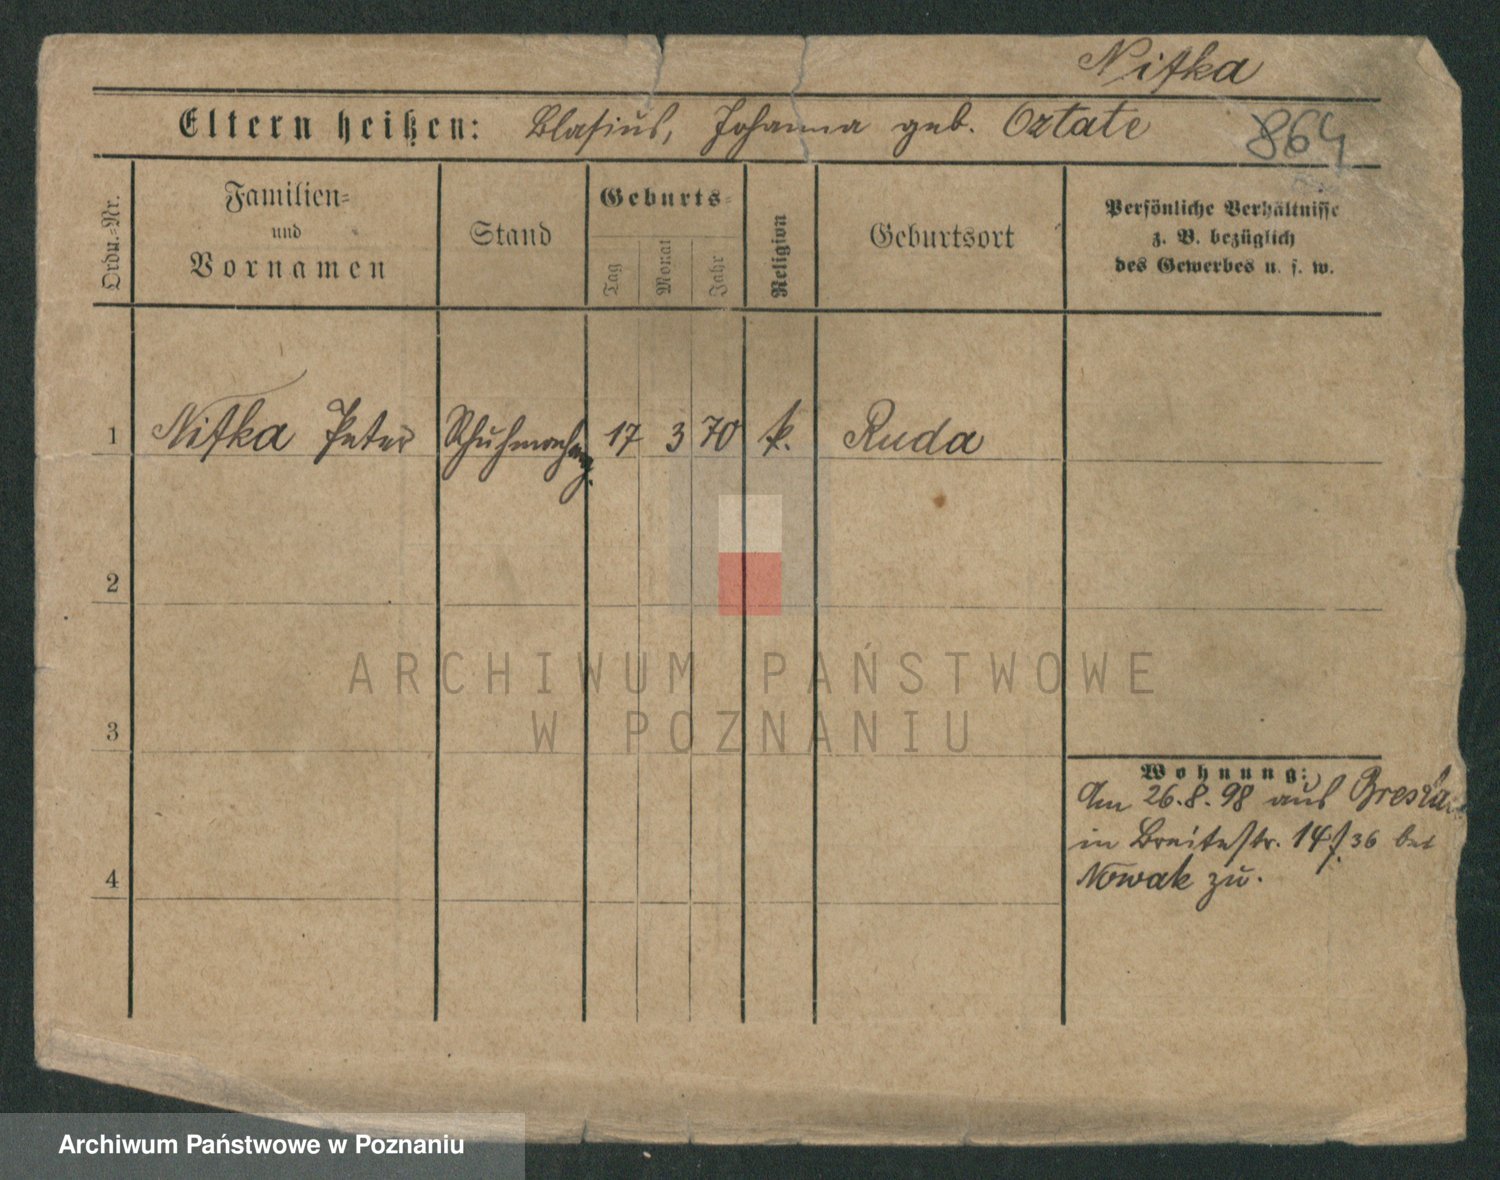 Nitka
Eltern heißen: Blasius, Johanna geb. Oztate
864
Ordn.=Nr.
Familien=
und
Vornamen
Stand
Geburts=
Tag
Monat
Jahr
Religion
Geburtsort
Persönliche Verhältnisse
z. B. bezüglich
des Gewerbes u. s. w.
1 Nitka Peter Schuhmacherg. 17 3 70 k. Ruda
2
3
4
Wohnung:
Am 26.8.98 aus
in Breitestr. 14/36 bei
Nowak zu.
ARCHIWUM PAŃSTWOWE
W POZNANIU
Archiwum Państwowe w Poznaniu